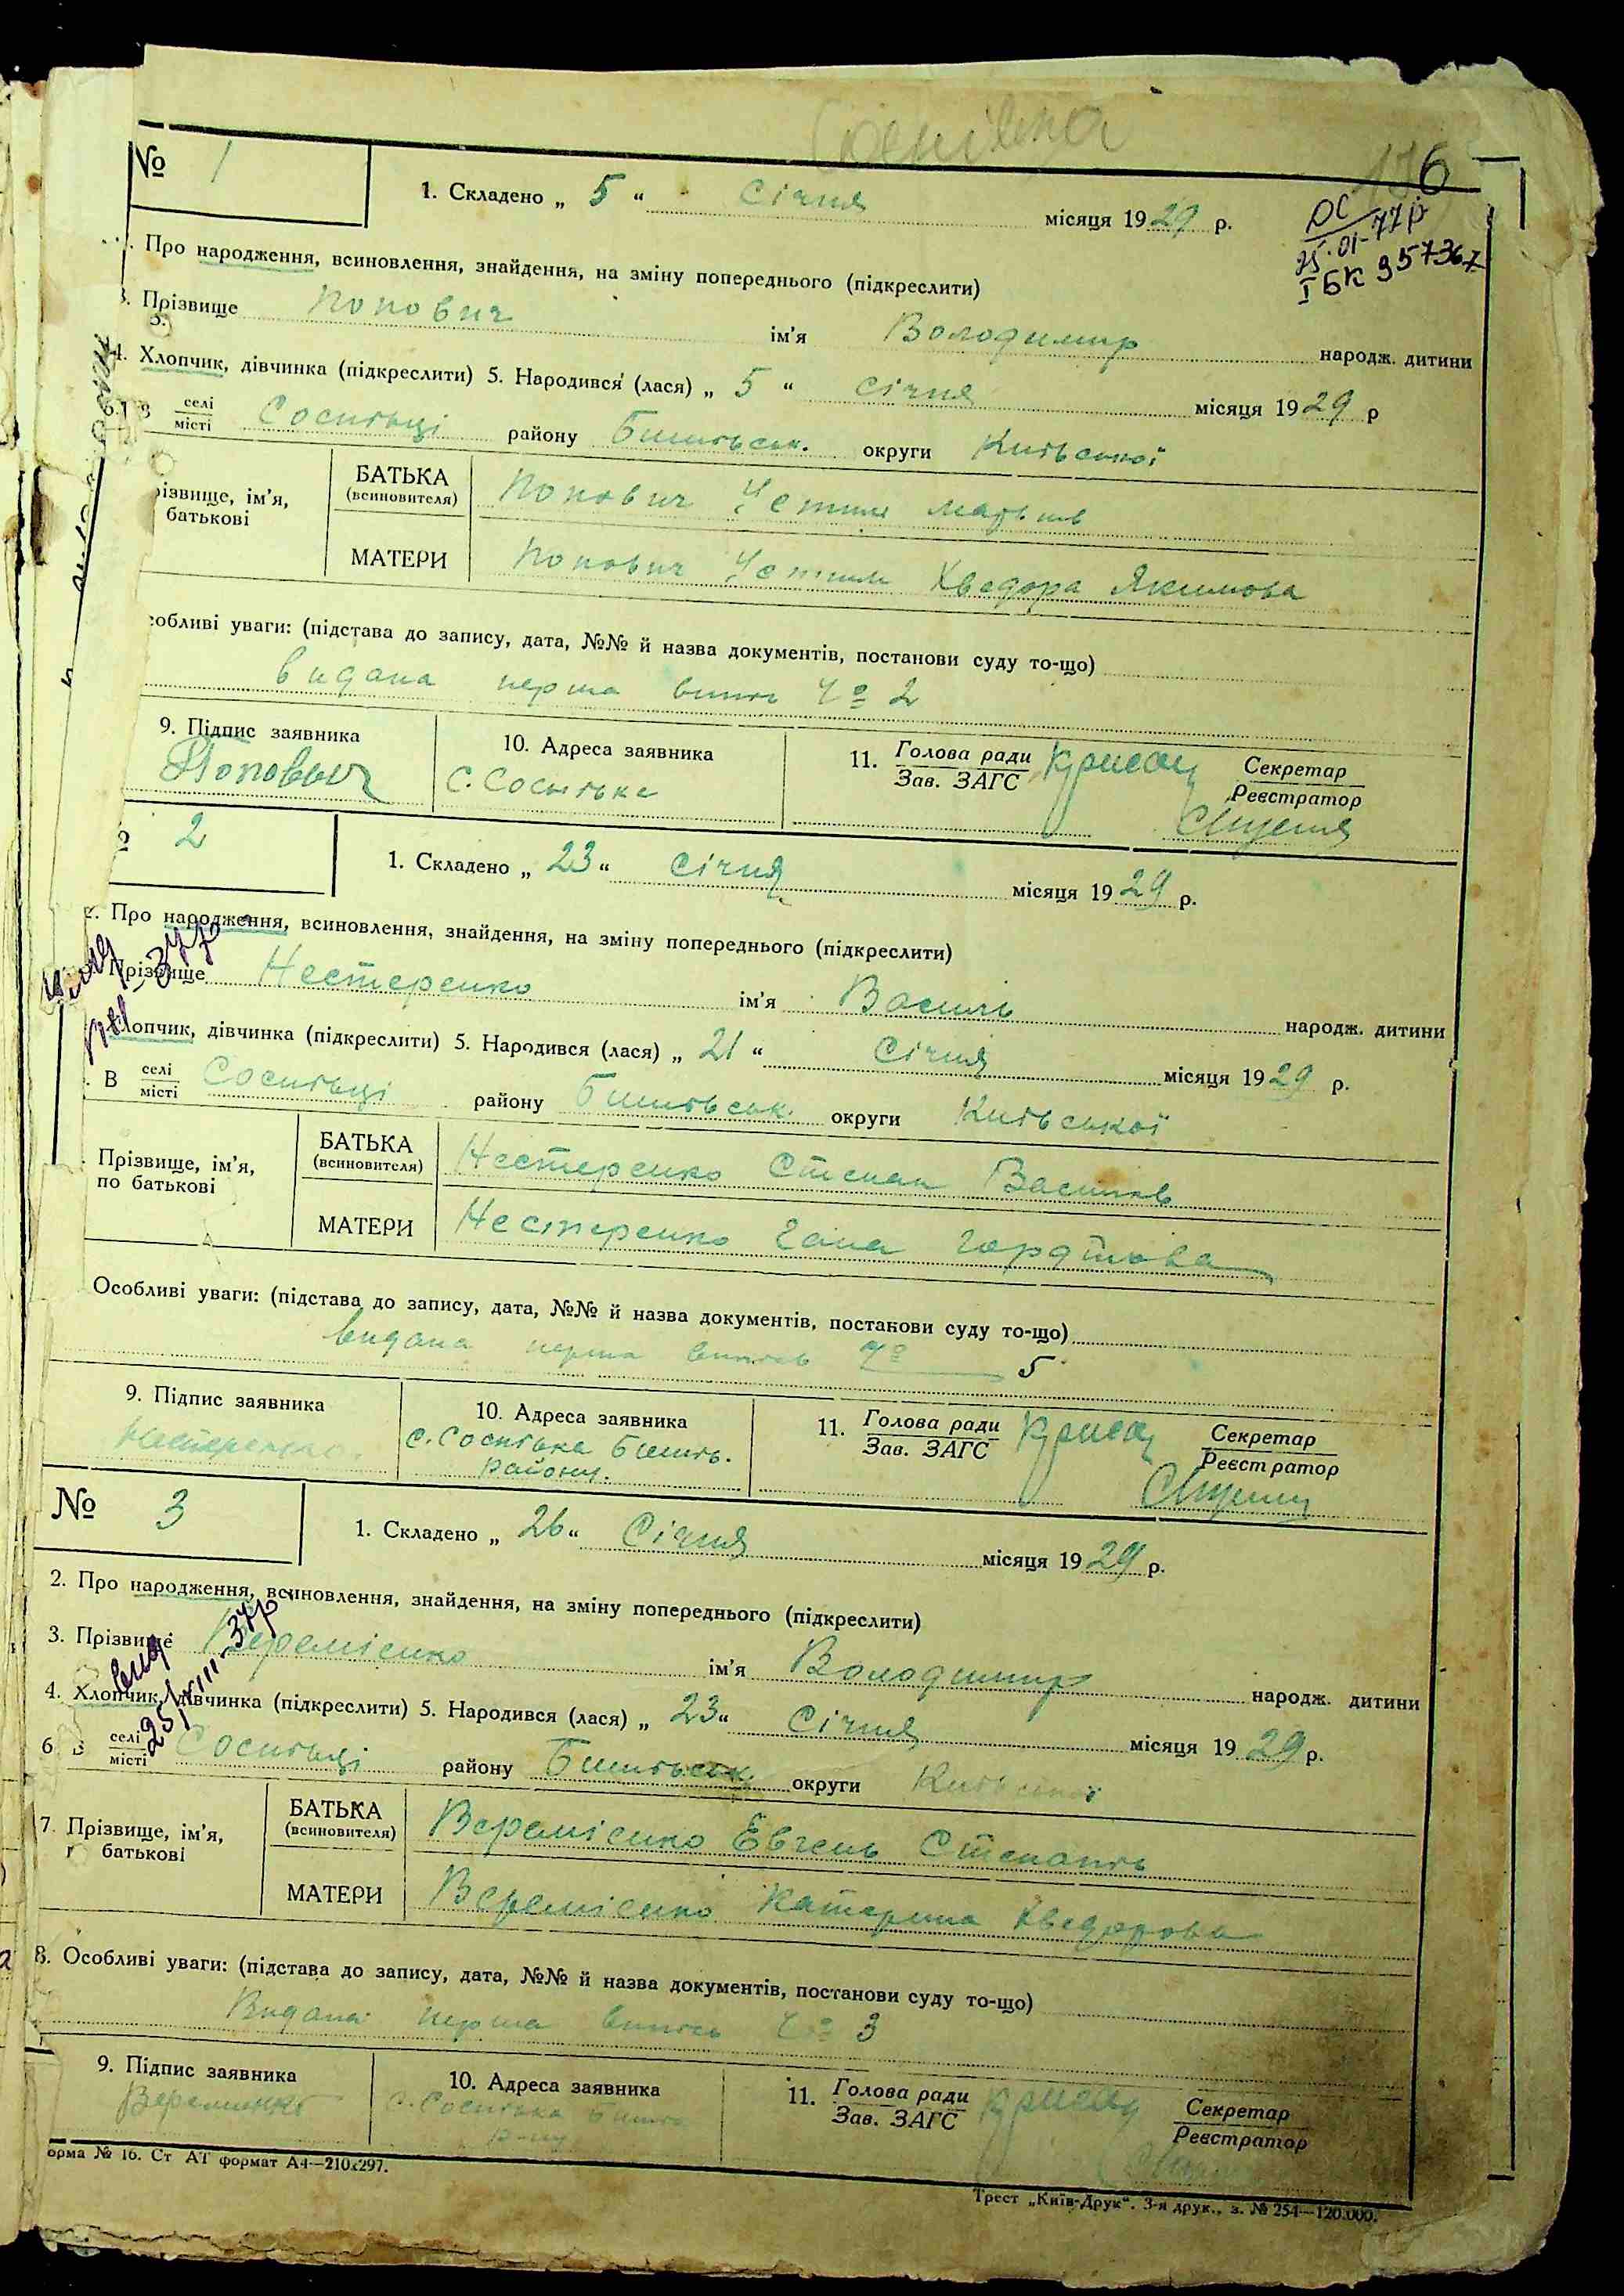 Соснівка
№ 1
1. Складено „ 5 “ Січня місяця 1929 р.
136
ДС
25-01-77р
І БК 957367
Про народження, всиновлення, знайдення, на зміну попереднього (підкреслити)
3. Прізвище Попович ім'я Володимир народж. дитини
4. Хлопчик, дівчинка (підкреслити) 5. Народився (лася) „ 5 “ січня місяця 1929 р
В селі місті Соснівці району Бишівськ. округи Київської
різвище, ім'я, батькові
БАТЬКА (всиновителя) Попович Устим
МАТЕРИ Попович Хведора Якимова
собливі уваги: (підстава до запису, дата, №№ й назва документів, постанови суду то-що)
видана перша випись Ч° 2
9. Підпис заявника 10. Адреса заявника 11. Голова ради Зав. ЗАГС Секретар Реєстратор
Попович с. Соснівка
2
1. Складено „ 23 “ січня місяця 1929 р.
2. Про народження, всиновлення, знайдення, на зміну попереднього (підкреслити)
Прізвище Нестеренко ім'я Василь народж. дитини
Хлопчик, дівчинка (підкреслити) 5. Народився (лася) „ 21 “ Січня місяця 1929 р.
В селі місті Соснівці району Бишівськ. округи Київської
Прізвище, ім'я, по батькові
БАТЬКА (всиновителя) Нестеренко Степан Василів
МАТЕРИ Нестеренко Гана Гордієва
Особливі уваги: (підстава до запису, дата, №№ й назва документів, постанови суду то-що)
видана перша випись Ч° 5
9. Підпис заявника 10. Адреса заявника 11. Голова ради Зав. ЗАГС Секретар Реєстратор
Нестеренко с. Соснівка Бишів. району.
№ 3
1. Складено „ 26 “ Січня місяця 1929 р.
2. Про народження, всиновлення, знайдення, на зміну попереднього (підкреслити)
3. Прізвище Веремієнко ім'я Володимир народж. дитини
4. Хлопчик, дівчинка (підкреслити) 5. Народився (лася) „ 23 “ Січня місяця 1929 р.
6. В селі місті Соснівці району Бишівськ. округи Київської
7. Прізвище, ім'я, батькові
БАТЬКА (всиновителя) Веремієнко Евгень Степанів
МАТЕРИ Веремієнко Катерина Хведорова
8. Особливі уваги: (підстава до запису, дата, №№ й назва документів, постанови суду то-що)
Видана перша випись Ч° 3
9. Підпис заявника 10. Адреса заявника 11. Голова ради Зав. ЗАГС Секретар Реєстратор
с. Соснівка Бишів. р-ну
орма № 16. Ст АТ формат А4—210х297.
Трест „Київ-Друк“. 3-я друк., з. № 254—120.000.